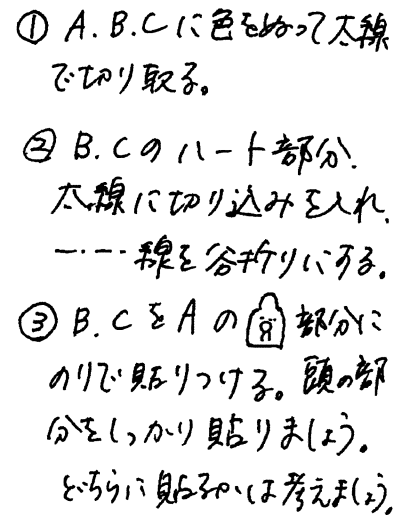 ① A.B.Cに色をぬって太線
で切り取る。
② B.Cのハート部分、
太線に切り込みを入れ、
−・−・−線を谷折りにする。
③ B.CをAの部分に
のりで貼りつける。頭の部
分をしっかり貼りましょう。
どちらに貼るかは考えましょう。